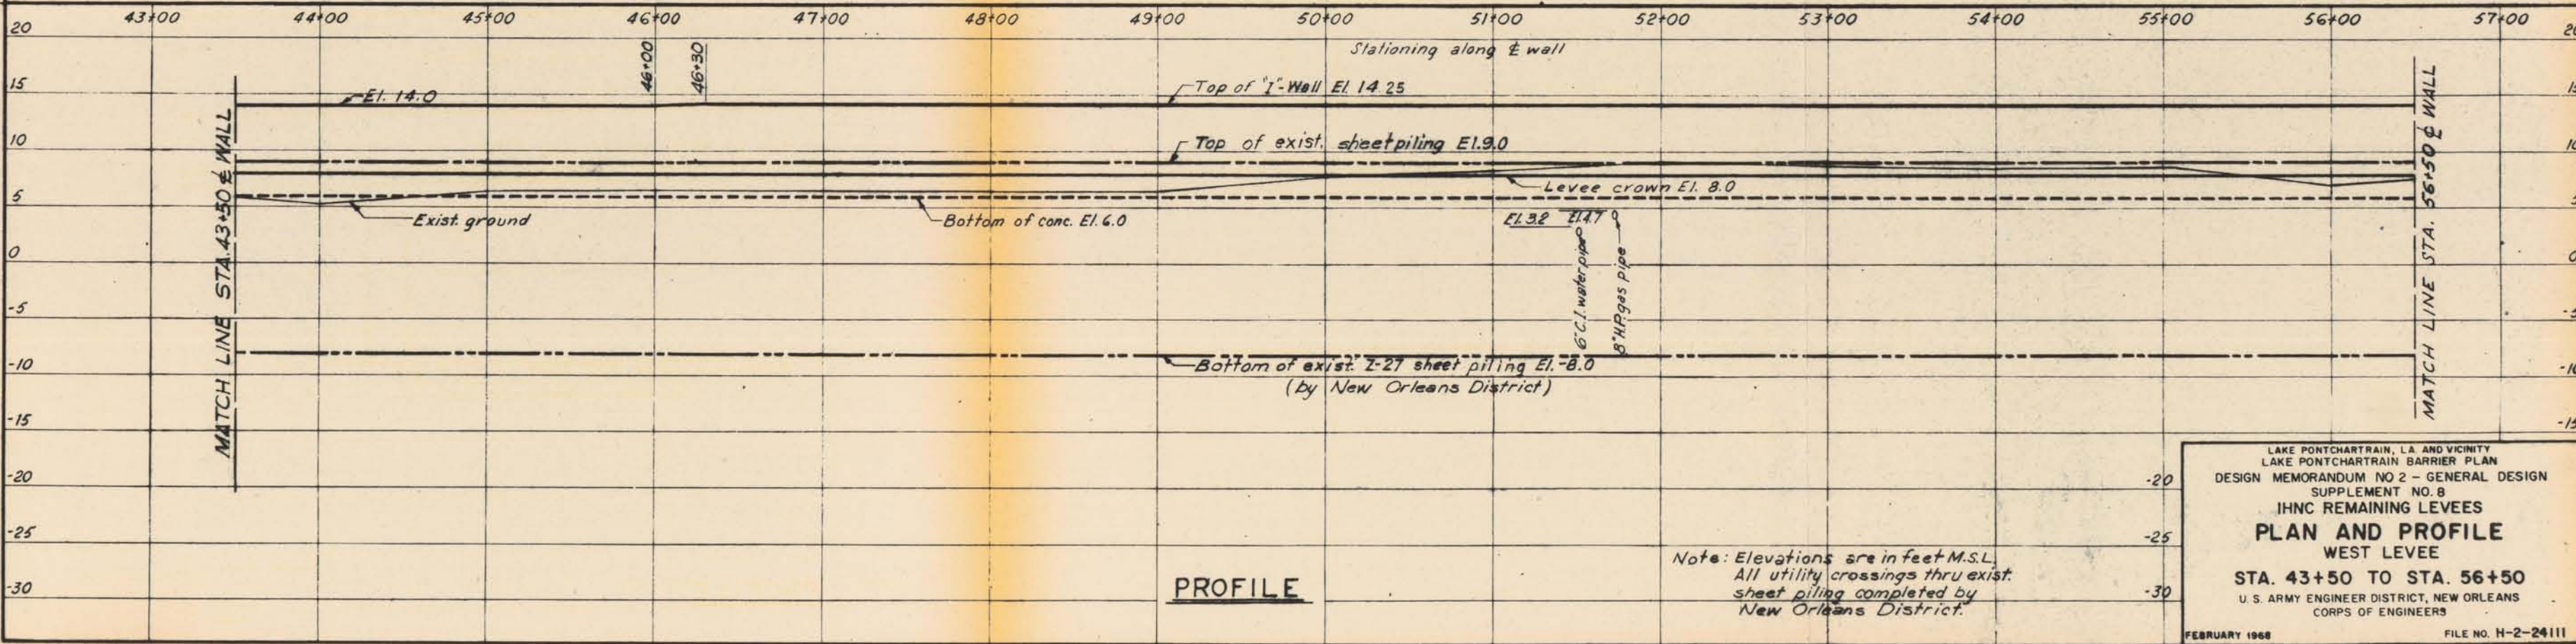 43+00 44+00 45+00 46+00 47+00 48+00 49+00 50+00 51+00 52+00 53+00 54+00 55+00 56+00 57+00
20
Stationing along ℄ wall
46+00
46+30
15 15
El. 14.0
Top of "I"-Wall El. 14.25
10 10
Top of exist. sheet piling El. 9.0
Levee crown El. 8.0
5
Exist. ground
Bottom of conc. El. 6.0
El. 3.2 El. 4.7
0 0
6" C.I. water pipe
8" H.P. gas pipe
MATCH LINE STA. 43+50 ℄ WALL
MATCH LINE STA. 56+50 ℄ WALL
-5 -5
-10 -10
Bottom of exist. Z-27 sheet piling El. -8.0
(by New Orleans District)
-15 -15
-20 -20
-25 -25
-30 -30
PROFILE
Note: Elevations are in feet M.S.L.
All utility crossings thru exist.
sheet piling completed by
New Orleans District.
LAKE PONTCHARTRAIN, LA. AND VICINITY
LAKE PONTCHARTRAIN BARRIER PLAN
DESIGN MEMORANDUM NO 2 – GENERAL DESIGN
SUPPLEMENT NO. 8
IHNC REMAINING LEVEES
PLAN AND PROFILE
WEST LEVEE
STA. 43+50 TO STA. 56+50
U. S. ARMY ENGINEER DISTRICT, NEW ORLEANS
CORPS OF ENGINEERS
FEBRUARY 1968 FILE NO. H-2-24111